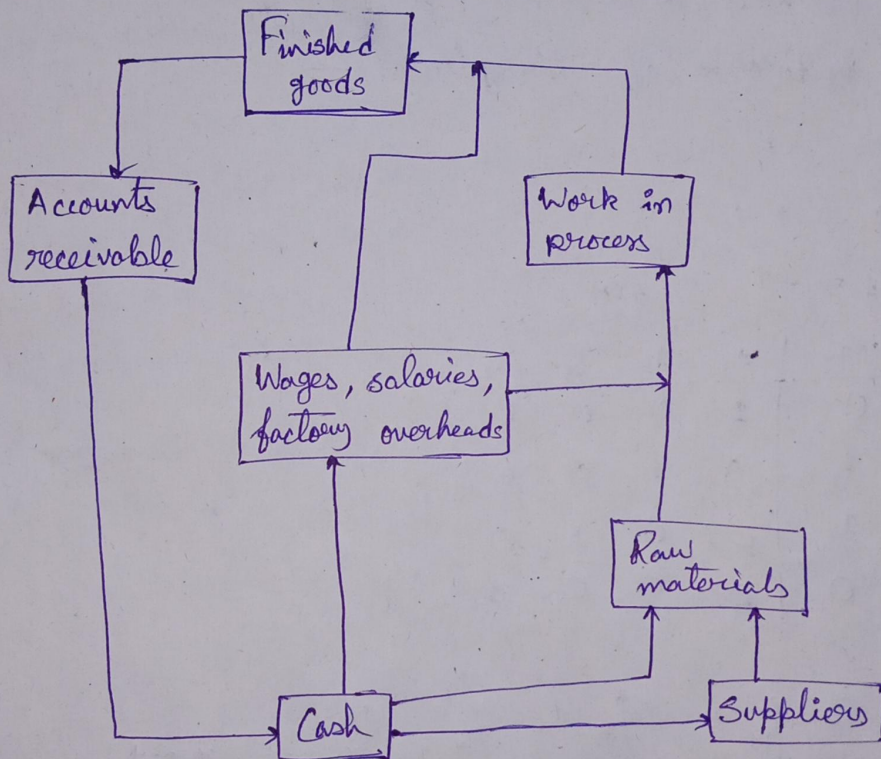 Finished
goods
Accounts
receivable
Work in
process
Wages, salaries,
factory overheads
Raw
materials
Cash
Suppliers